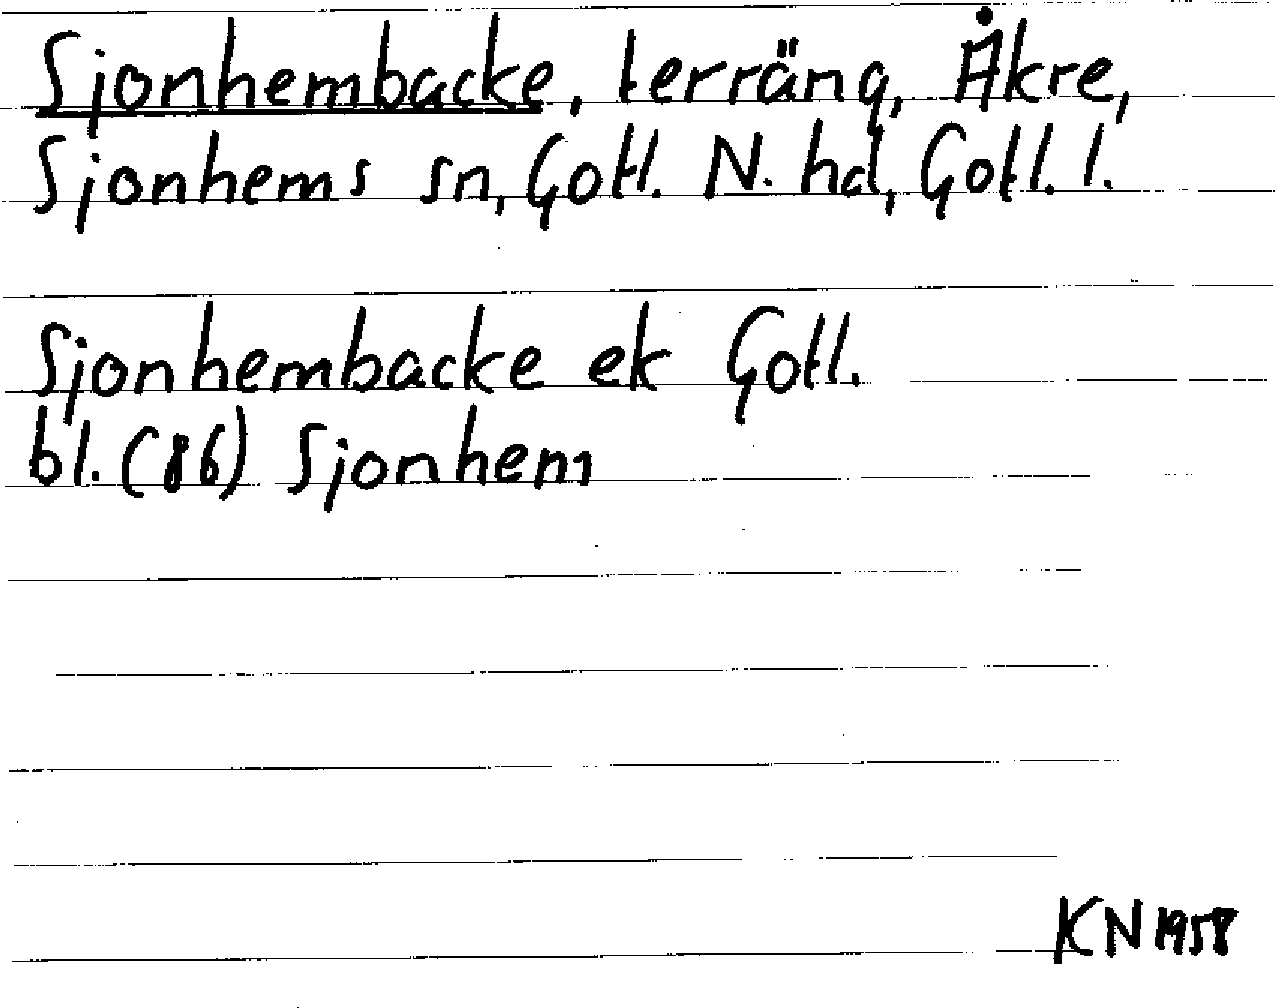 Sjonhembacke, terräng, Åkre,
Sjonhems sn, Gotl. N. hd, Gotl. l.
Sjonhembacke ek Gotl.
bl. (86) Sjonhem
KN 1958